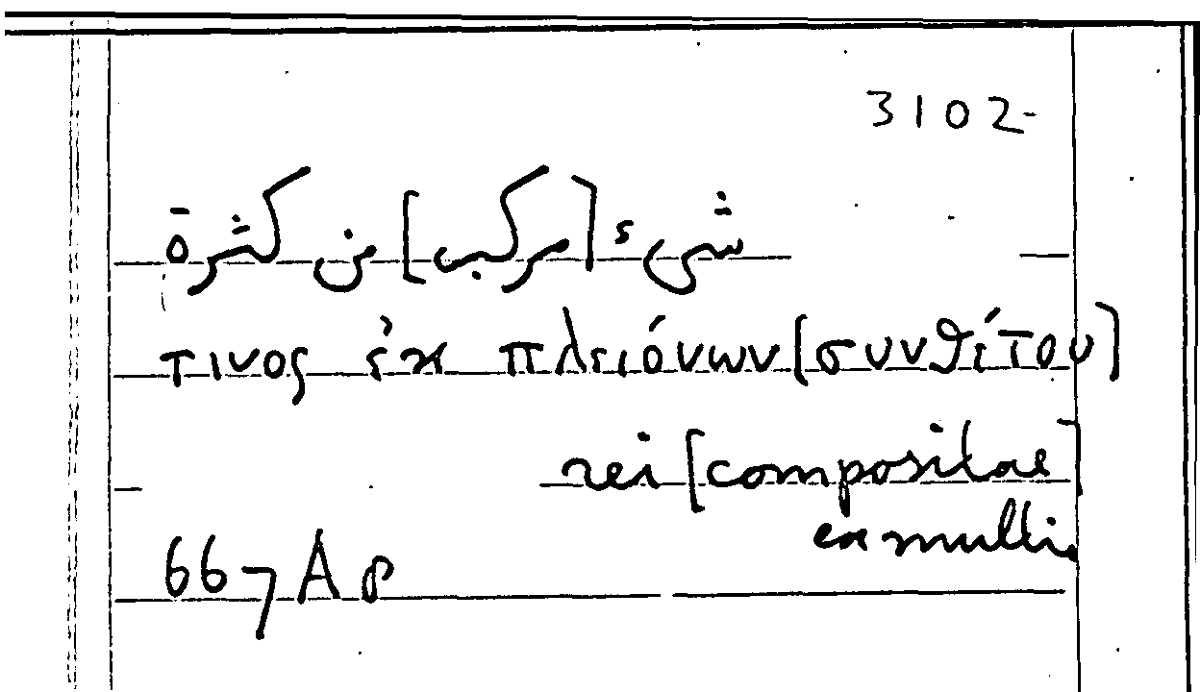 3102-
شىء [مركب] من كثرة
τινος ἐκ πλειόνων [συνθέτου]
rei [compositae]
ex multis
667 A 8